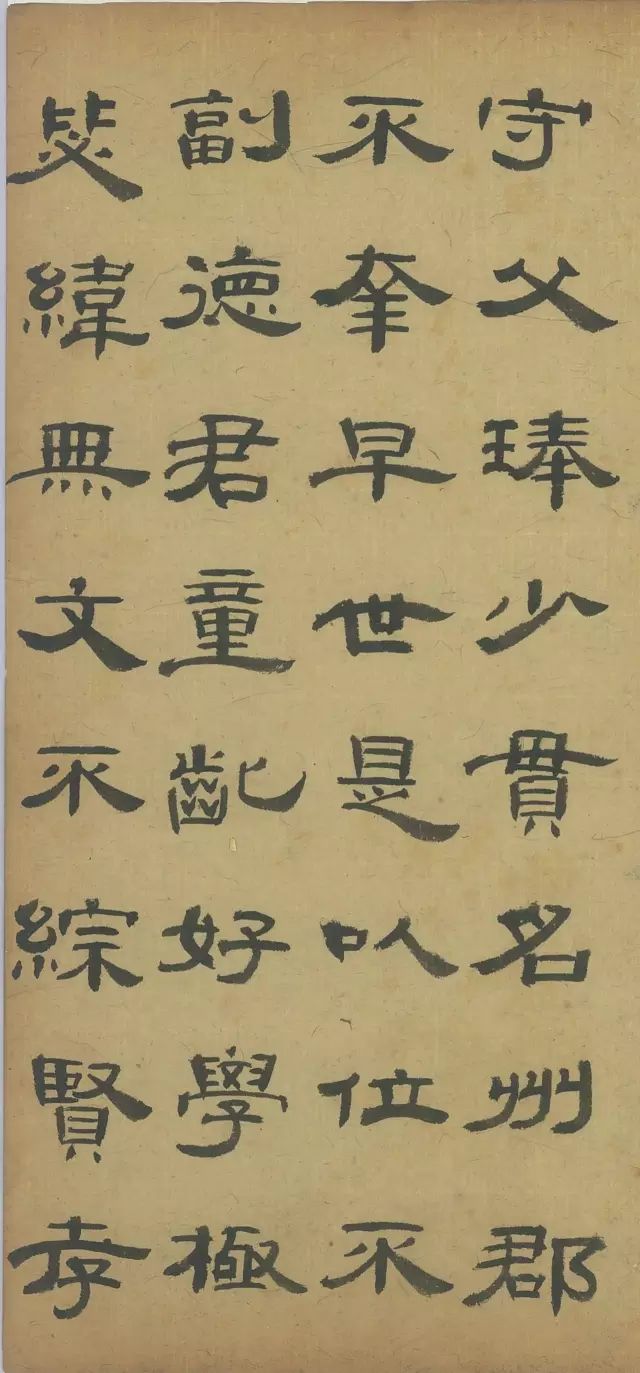 守父琫少貫名州郡
不幸早世是以位不
副德君童齔好學極
毖緯無文不綜賢孝